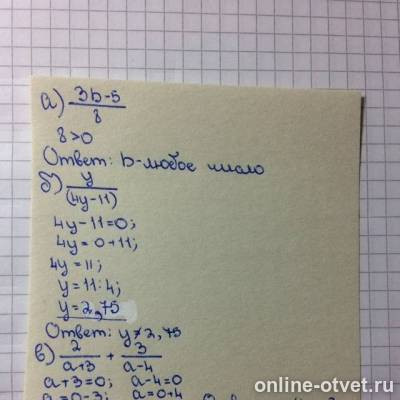 а) 3b-5
8
8>0
Ответ: b-любое число
б) y
(4y-11)
4y-11=0;
4y=0+11;
4y=11;
y=11:4;
y=2,75
Ответ: y≠2,75
в) 2/a+3 + 3/a-4
a+3=0; a-4=0
a=0-3; a=0+4
online-otvet.ru